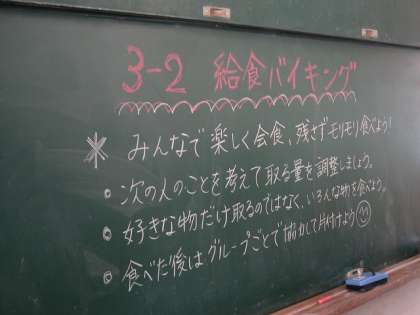 3-2 給食バイキング
※ みんなで楽しく会食、残さずモリモリ食べよう!
• 次の人のことを考えて取る量を調整しましょう。
• 好きな物だけ取るのではなく、いろんな物を食べよう。
• 食べた後はグループごとで協力して片付けよう